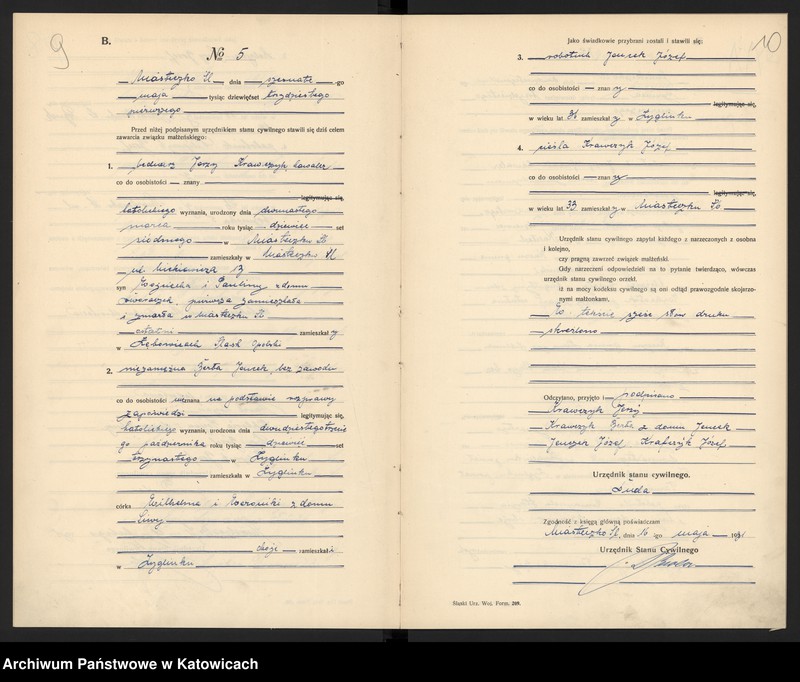 9
B.
№ 5
Miasteczko Śl. dnia szesnaste -go
maja tysiąc dziewięćset trzydziestego
pierwszego
Przed niżej podpisanym urzędnikiem stanu cywilnego stawili się dziś celem
zawarcia związku małżeńskiego:
1. bednarz Jerzy Krawczyk, kawaler
co do osobistości — znany
legitymując się,
katolickiego wyznania, urodzony dnia dwunastego
marca roku tysiąc dziewięć set
siódmego w Miasteczku Śl
zamieszkały w Miasteczku Śl
ul. Mickiewicza 13
syn Wojciecha i Pauliny z domu
pierwsza zamieszkała
i zmarła w Miasteczku Śl
ostatni zamieszkał y
w Łębowicach Śląsk Opolski
2. niezamężna Berta Jenrek, bez zawodu
co do osobistości uznana na podstawie rozprawy
zapowiedzi legitymując się,
katolickiego wyznania, urodzona dnia dwudziestego trzecie
go października roku tysiąc dziewięć set
trzynastego w Żyglinku
zamieszkała w Żyglinku
córka Wilhelma i Weroniki z domu
oboje zamieszkali
w Żyglinku
10
Jako świadkowie przybrani zostali i stawili się:
3. robotnik Jenrek Józef
co do osobistości — znan y
legitymując się,
w wieku lat 31 zamieszkał y w Żyglinku
4. cieśla Krawczyk Józef
co do osobistości — znan y
legitymując się,
w wieku lat 33 zamieszkał y w Miasteczku Śl
Urzędnik stanu cywilnego zapytał każdego z narzeczonych z osobna
i kolejno,
czy pragną zawrzeć związek małżeński.
Gdy narzeczeni odpowiedzieli na to pytanie twierdząco, wówczas
urzędnik stanu cywilnego orzekł,
iż na mocy kodeksu cywilnego są oni odtąd prawozgodnie skojarzo-
nymi małżonkami.
To stronie sześć słów druku
skreślono
Odczytano, przyjęto i podpisano
Krawczyk Jerzy
Krawczyk Berta z domu Jenrek
Jenczek Józef Krafczyk Józef
Urzędnik stanu cywilnego.
Zgodność z księgą główną poświadczam
Miasteczko Śl., dnia 16 -go maja 1931
Urzędnik Stanu Cywilnego
Śląski Urz. Woj. Form. 209.
Archiwum Państwowe w Katowicach